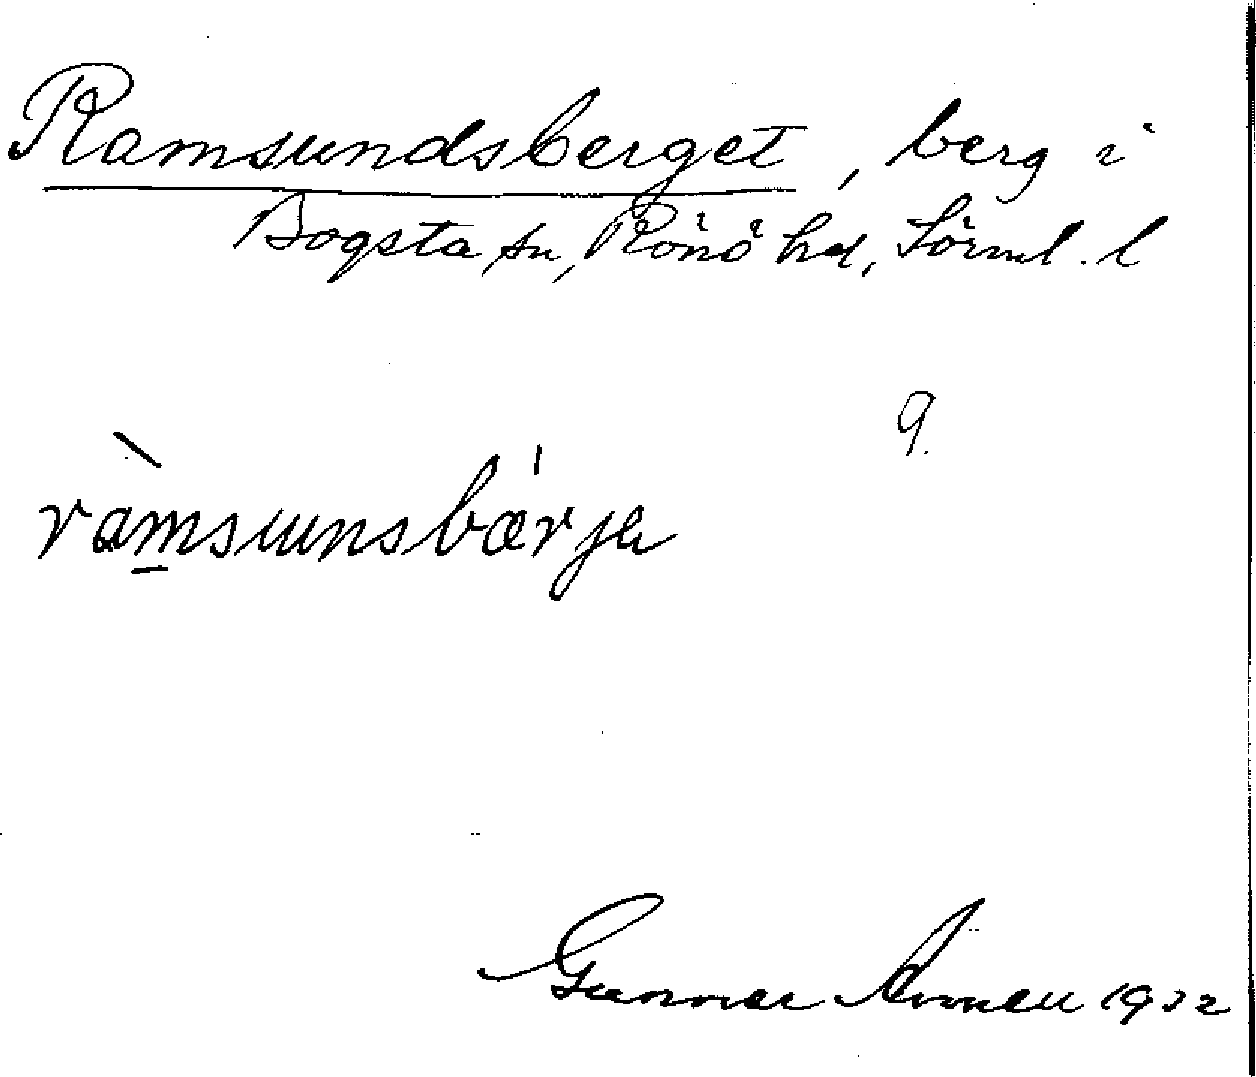 Ramsundsberget, berg i
Bogsta sn, Rönö hd, Sörml. l
9.
ràmsunsbærje
Gunnar 1932